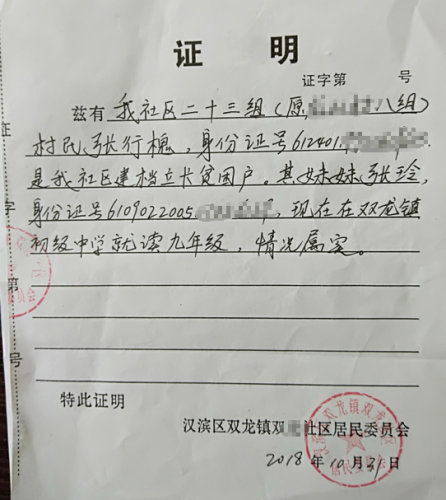 证 明
证字第 号
兹有我社区二十三组（原 八组）
村民张行槐，身份证号612401
是我社区建档立卡贫困户。其妹妹张玲，
身份证号6109022005 ，现在在双龙镇
初级中学就读九年级，情况属实。
特此证明
汉滨区双龙镇双 社区居民委员会
2018年10月31日
证
字
第
号